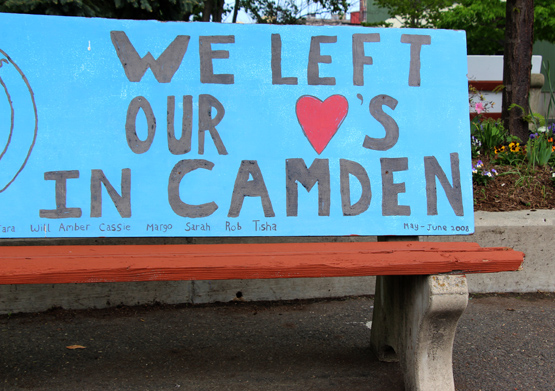 WE LEFT
OUR ♥'S
IN CAMDEN
Will Amber Cassie Margo Sarah Rob Tisha May-June 2008